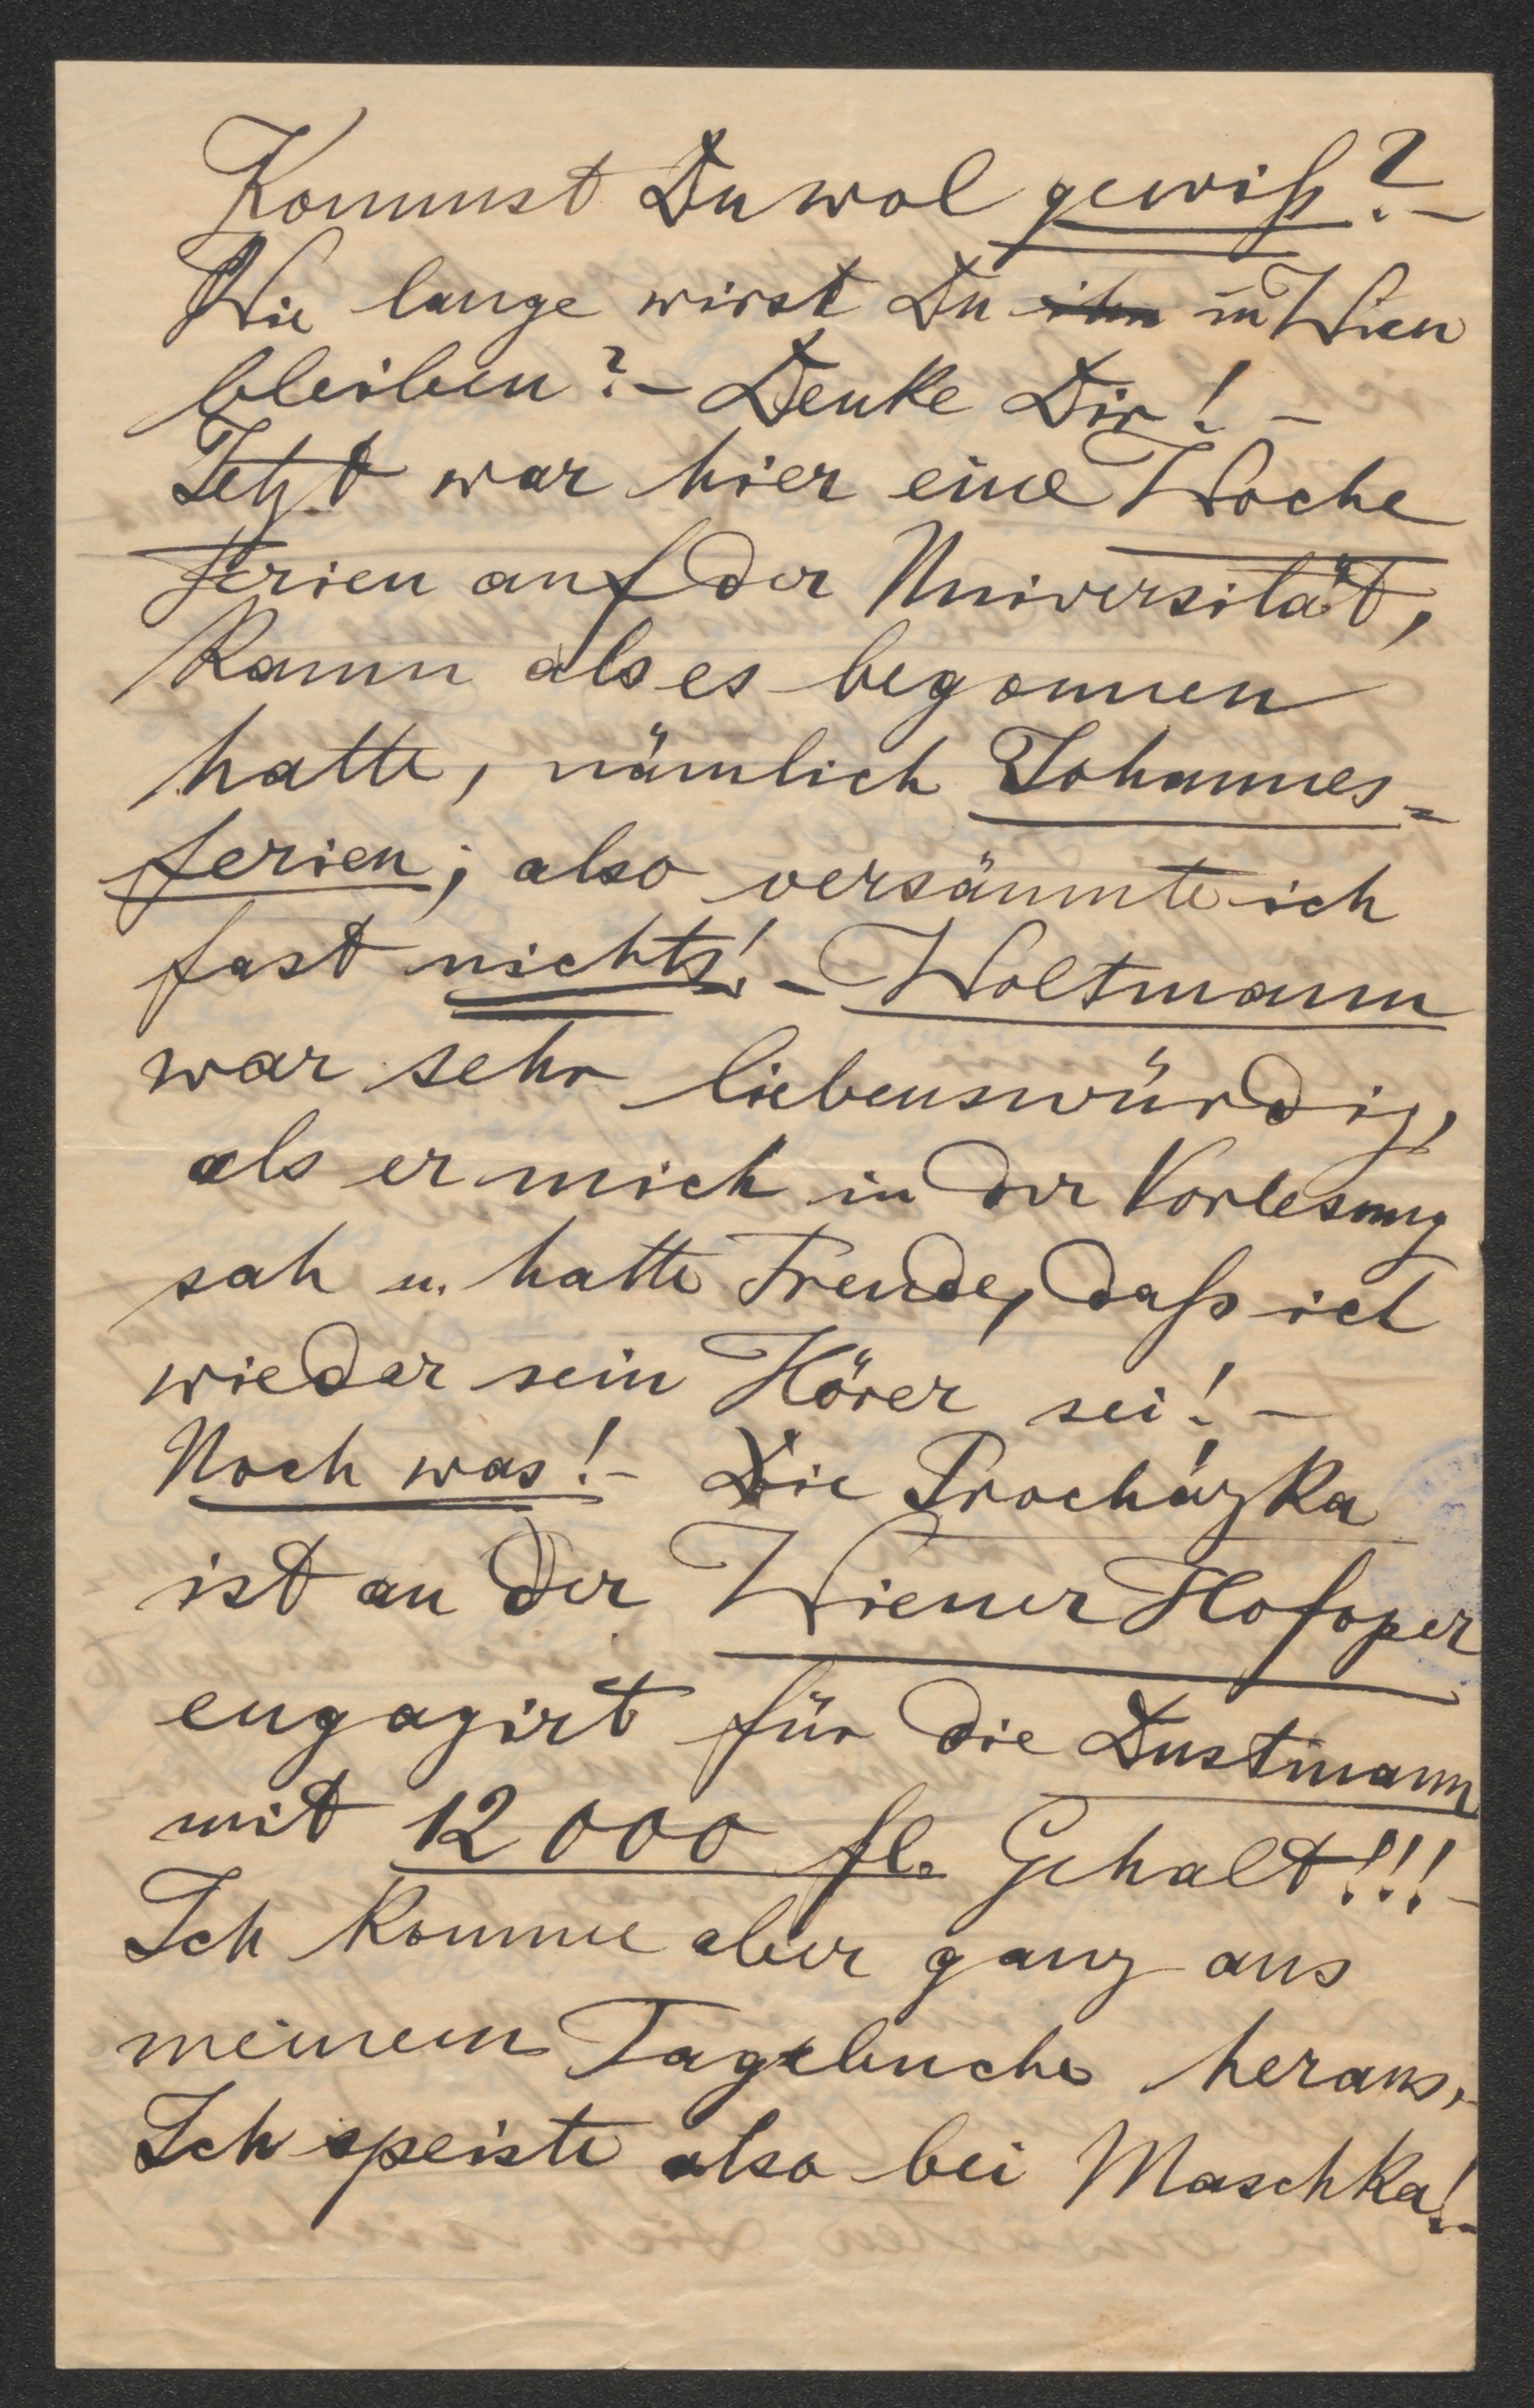 Kommst Du wol gewiß? –
Wie lange wirst Du ihn in Wien
bleiben? – Denke Dir! –
Jetzt war hier eine Woche
Ferien auf der Universität,
kaum als es begonnen
hatte, nämlich Johannes=
ferien; also versäumte ich
fast nichts! – Woltmann
war sehr liebenswürdig,
als er mich in der Vorlesung
sah u. hatte Freude, daß ich
wieder sein Hörer sei! –
Noch was! – Die Procházka
ist an der Wiener Hofoper
engagirt für die Dustmann
mit 12000 fl. Gehalt!!! –
Ich komme aber ganz aus
meinem Tagebuche heraus. –
Ich speiste also bei Maschka! –